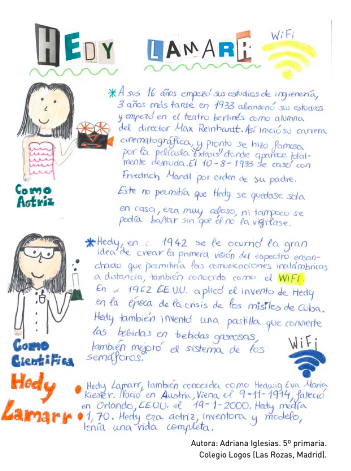 HEDY LAMARR
WiFi
* A sus 16 años empezó sus estudios de ingeniería,
3 años más tarde en 1933 abandonó sus estudios
y empezó en el teatro berlinés como alumna
del director Max Reinhardt. Así inició su carrera
cinematográfica, y pronto se hizo famosa
por la película Extasis donde aparece total-
mente desnuda. El 10-8-1933 se casó con
Friedrich Mandl por orden de su padre.
Este no permitía que Hedy se quedase sola
en casa, era muy celoso, ni tampoco se
podía bañar sin que él no la vigilase.
Como
Actriz
* Hedy, en 1942 se le ocurrió la gran
idea de crear la primera visión del espectro ensan-
chado que permitiría las comunicaciones inalámbricas
a distancia, también conocido como el WIFI.
En 1962 EEUU. aplicó el invento de Hedy
en la época de la crisis de los misiles de Cuba.
Hedy también inventó una pastilla que convierte
las bebidas en bebidas gaseosas,
también mejoró el sistema de los
semáforos.
Como
Científica
WiFi
Hedy
Lamarr
• Hedy Lamarr, también conocida como Hedwig Eva Maria
Kiesler. Nació en Austria, Viena el 9-11-1914, falleció
en Orlando, EEUU. el 19-1-2000. Hedy medía
1,70. Hedy era actriz, inventora y modelo,
tenía una vida completa.
Autora: Adriana Iglesias. 5º primaria.
Colegio Logos (Las Rozas, Madrid).